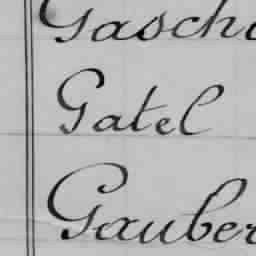 Gasch
Gatel
Gauber